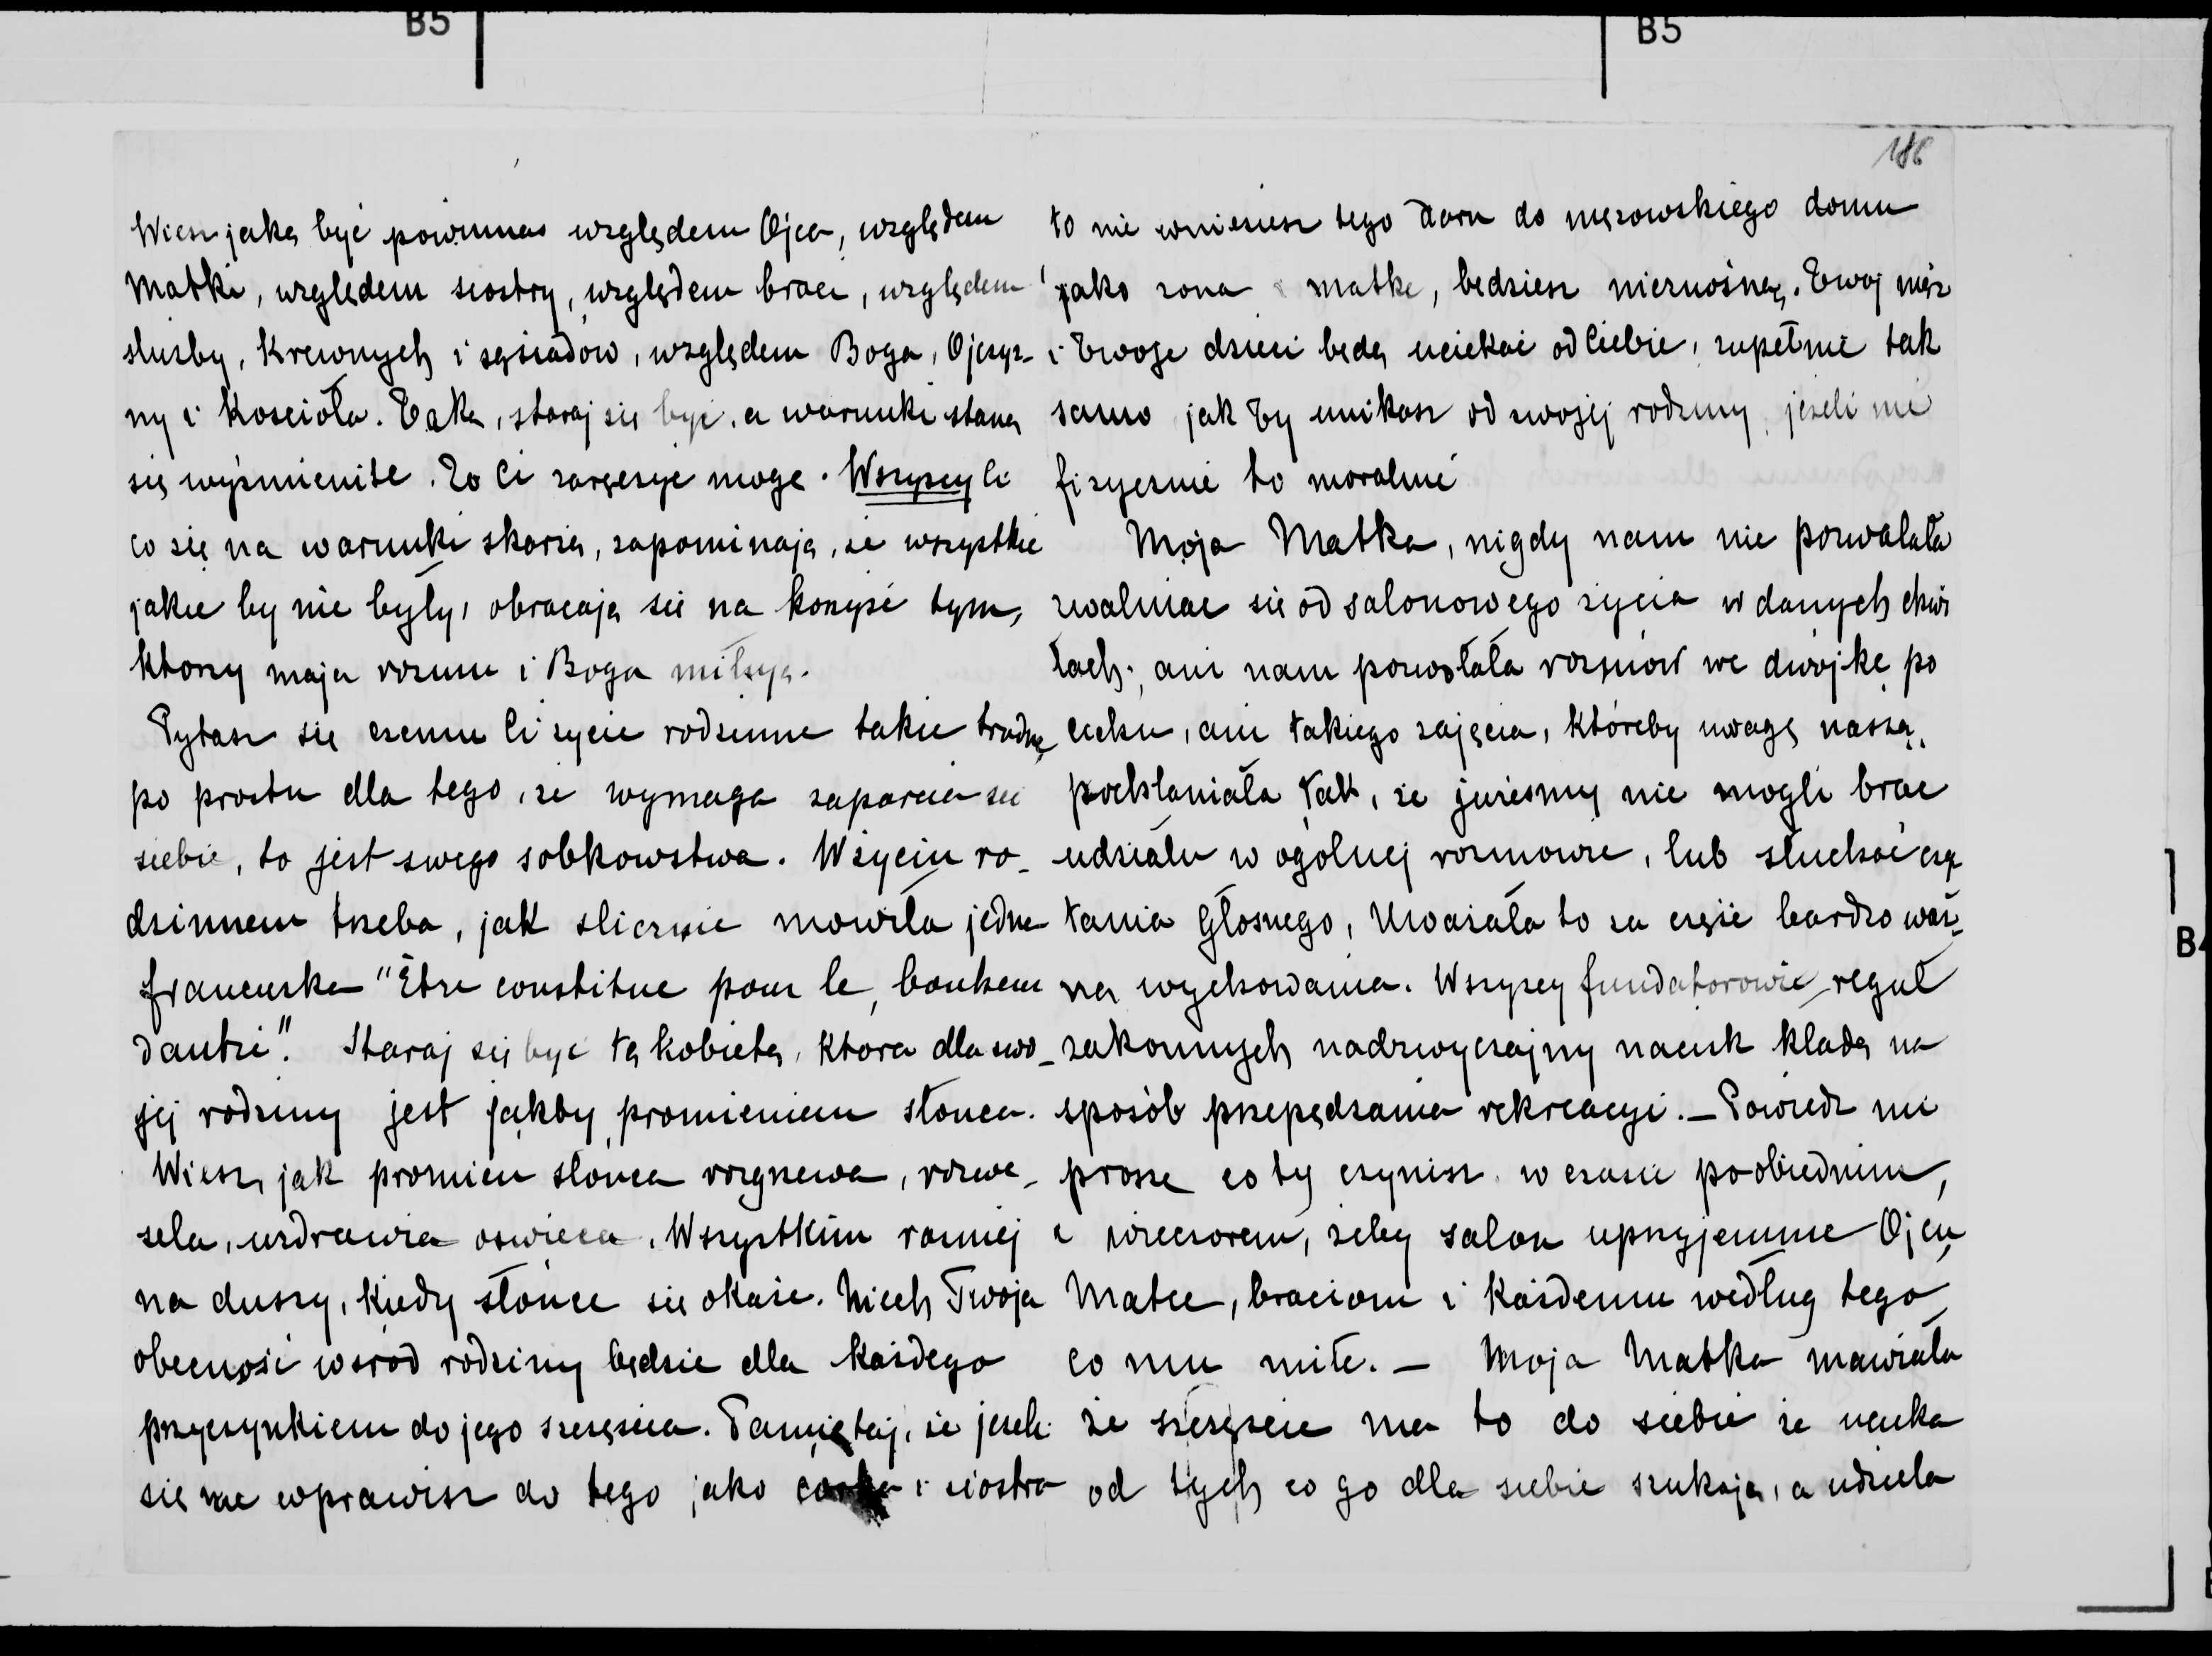 B5
B5
186
Wiesz jaką być powinnas względem Ojca, względem
Matki, względem siostry, względem braci, względem
służby, krewnych i sąsiadów, względem Boga, Ojczyz-
ny i Kościoła. Taką, staraj się być, a warunki staną
się wyśmienite. To Ci zaręczyć mogę. Wszyscy Ci
co się na warunki skarżą, zapominają, że wszystkie
jakie by nie były, obracają się na korzyść tym,
ktorzy mają rozum i Boga miłują.
Pytasz się czemu Ci życie rodzinne takie trudne,
po prostu dla tego, że wymaga zaparcia się
siebie, to jest swego sobkowstwa. W życiu ro-
dzinnem trzeba, jak slicznie mowiła jedna
francuska "Être constitue pour le bonheur
d'autri". Staraj się być tą kobietą, ktora dla swo-
jej rodziny jest jakby promieniem słonca.
Wiesz, jak promien słonca rozgrzewa, rozwe-
sela, uzdrawia oswieca. Wszystkim razniej
na duszy, kiedy słońce się okaże. Niech Twoja
obecność wsród rodziny będzie dla każdego
przyczynkiem do jego szczęscia. Pamiętaj, że jezeli
się nie wprawisz do tego jako corka i siostra
to nie wniesiesz tego daru do mężowskiego domu
jako zona i matka, będziesz nieznośną. Twoj mąż
i Twoje dzieci będą uciekać od Ciebie, zupełnie tak
samo jak Ty unikasz od swojej rodziny, jeżeli nie
fizycznie to moralnie
Moja Matka, nigdy nam nie pozwalała
zwalniac się od salonowego życia w danych chwi
lach; ani nam pozwolała rozmów we dwójkę po
cichu, ani takiego zajęcia, któreby uwagę naszą
pochłaniała tak, że jużesmy nie mogli brac
udziału w ogólnej rozmowie, lub słuchać czy
tania głosnego, Uważała to za częśc bardzo waż-
ną wychowania. Wszyscy fundatorowie reguł
zakonnych nadzwyczajny nacisk kładą na
sposób przepędzania rekreacyi. – Powiedz mi
proszę co ty czynisz w czasie poobiednim,
i wieczorem, żeby salon uprzyjemnic Ojcu
Matce, braciom i każdemu według tego
co mu miłe. – Moja Matka mawiała
że szczęscie ma to do siebie że ucieka
od tych co go dla siebie szukają, a udziela